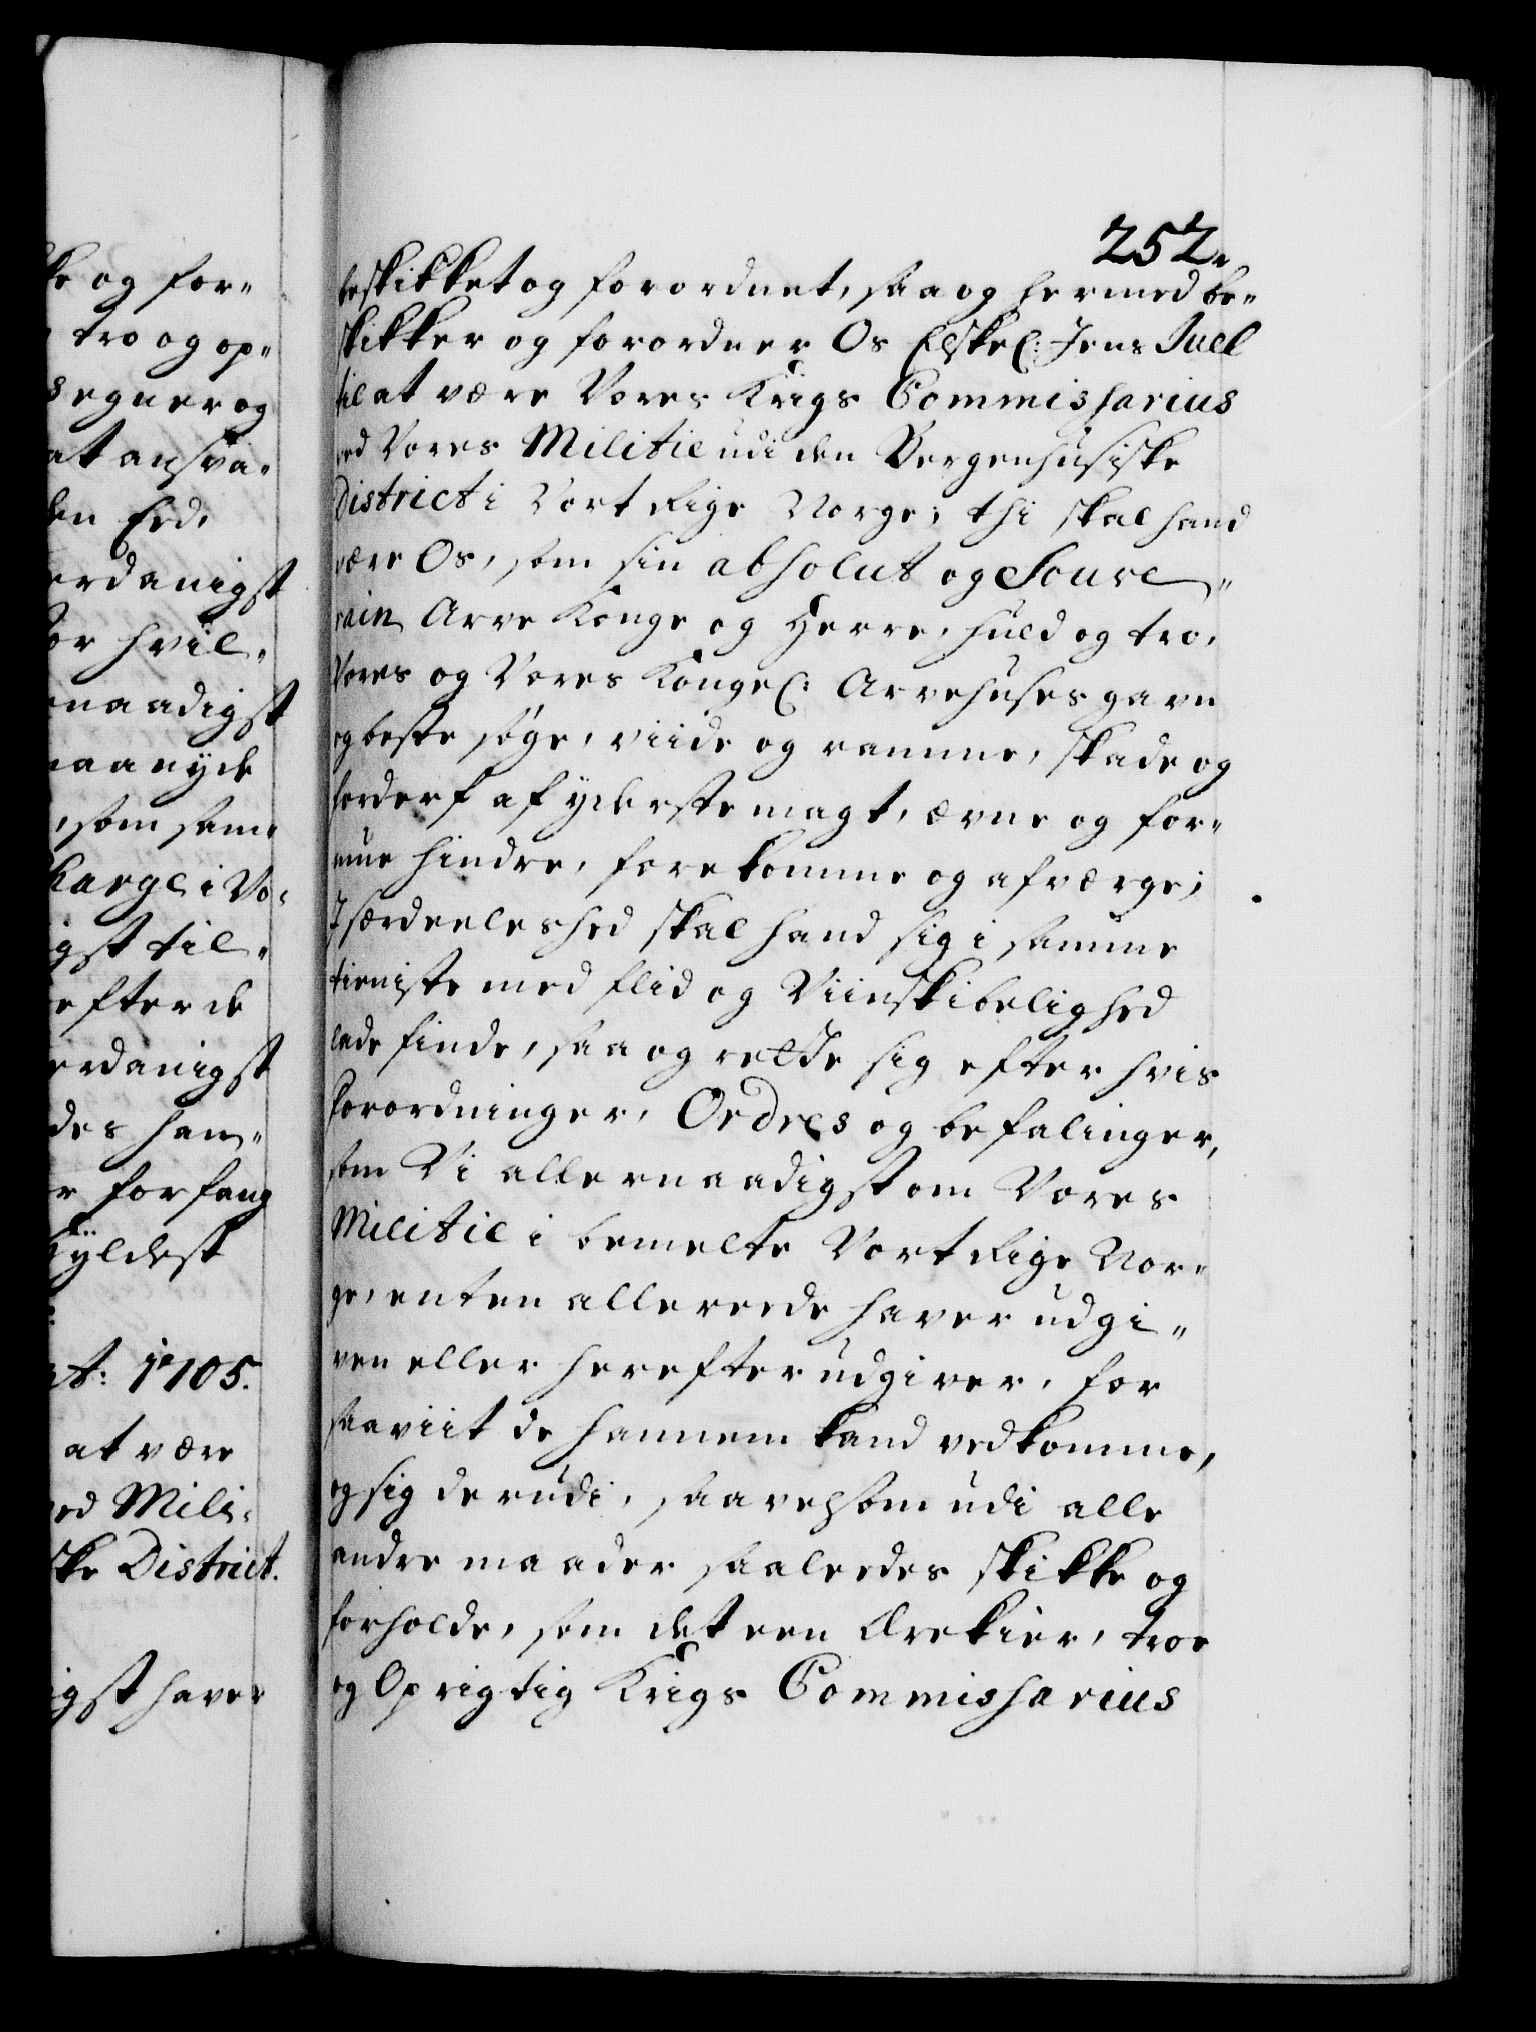 ke og for-
tro og op-
egner og
at ansva-
den Eed,
erdanigst
for hvil-
naadigst
maa nyde
, som sam-
Charge i Vo-
igst til-
efter de
erdanigst
des han-
r forfang
Hyldest
nt: 1705.
at være
ved Mili-
ske District.
igst haver
252.
beskikket og forordnet, saa og hermed be-
skikker og forordner Os Elskel: Jens Juel
til at være Vores Krigs Commissarius
ved Vores Militie udi den Bergenhusiske
District i Vort Rige Norge; thi skal hand
være Os, som sin absolut og Souve-
rain Arve Konge og Herre, huld og tro,
Vores og Vores Kongel: Arvehuses gavn
og beste søge, viide og ramme, skade og
forderf af yderste magt, ævne og for-
mue hindre, forekomme og afværge;
I særdeeleshed skal hand sig i samme
tieniste med flid og Viinskibelighed
lade finde, saa og rette sig efter hvis
forordninger, Ordres og befalinger,
som Vi allernaadigst om Vores
Militie i bemelte Vort Rige Nor-
ge, enten allereede haver udgi-
ven eller herefter udgiver, for
saaviit de hannem kand vedkomme,
og sig derudi, saavelsom udi alle
andre maader saaledes skikke og
forholde, som det een Ærekier, troe
og Oprigtig Krigs Commissarius